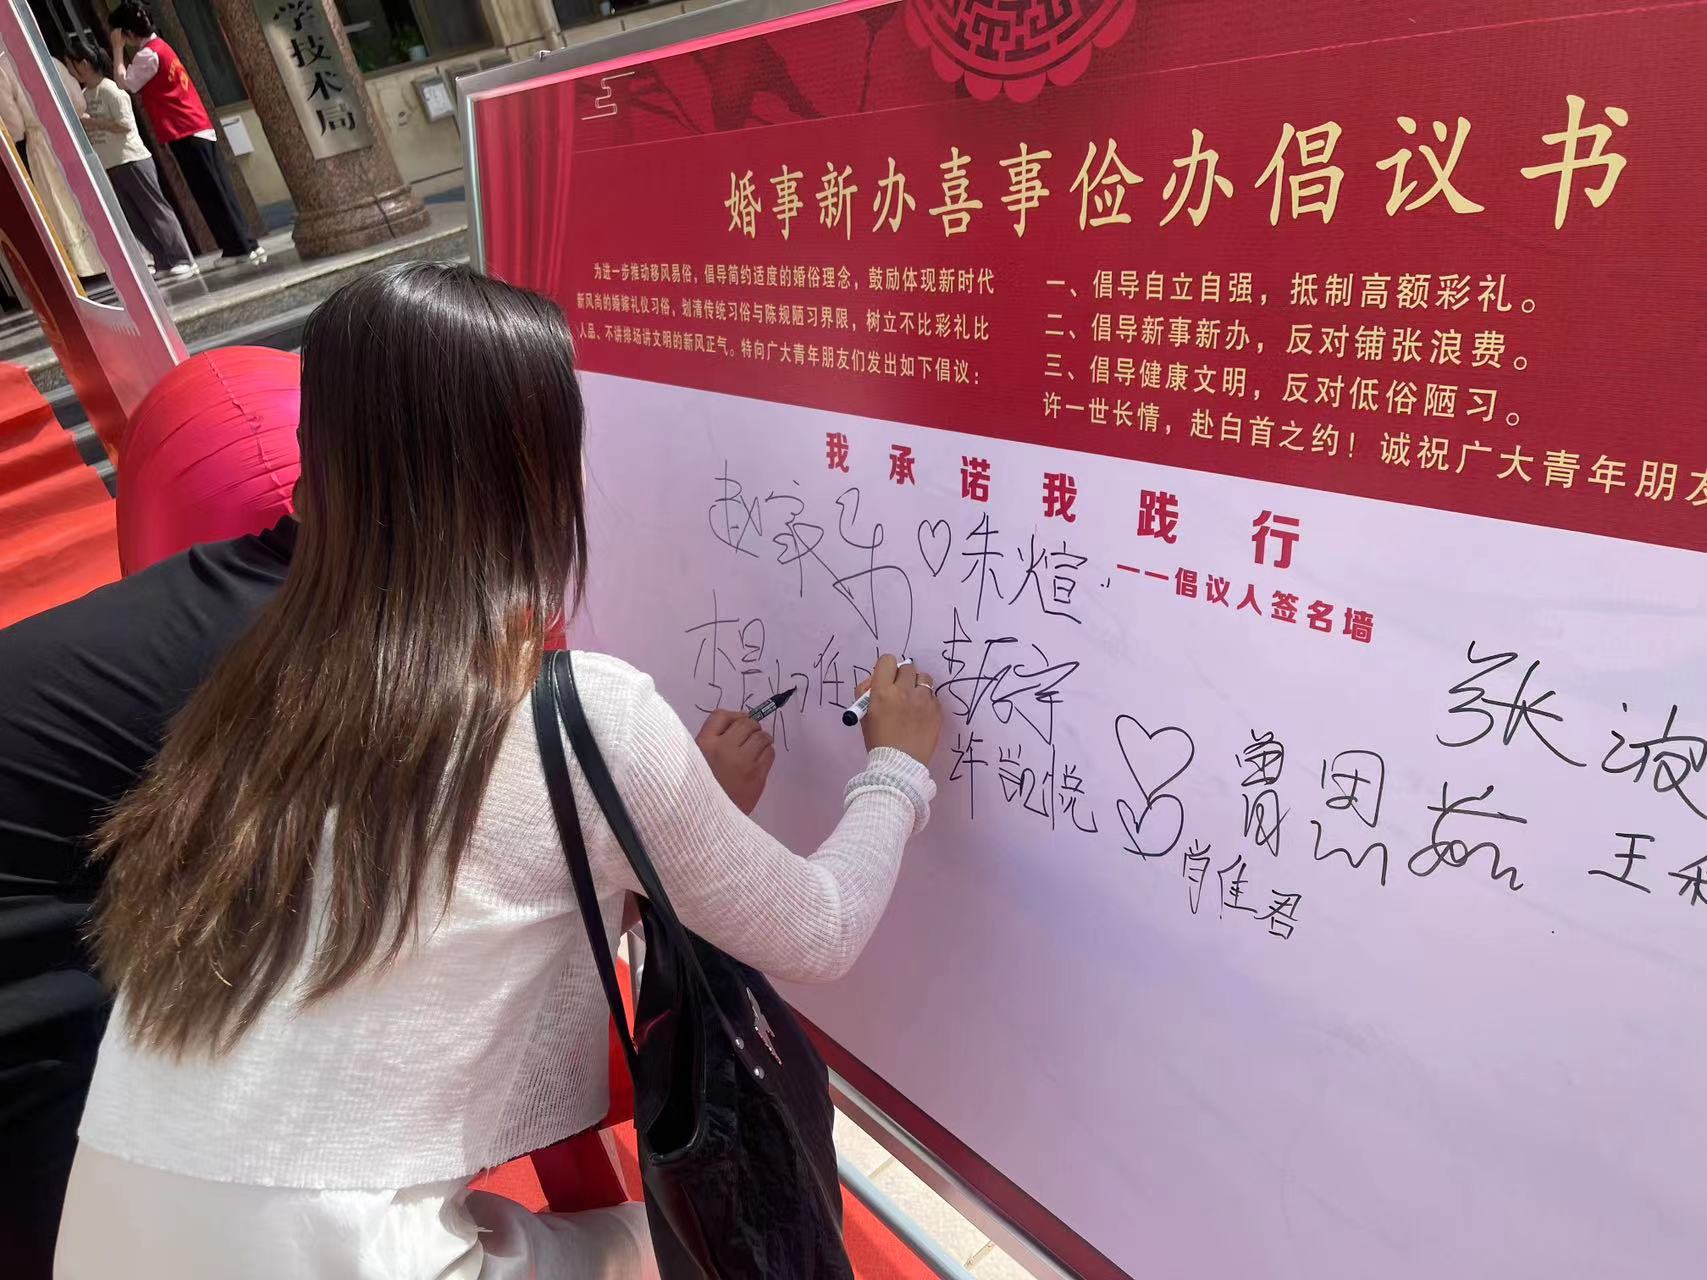 学技术局
婚事新办喜事俭办倡议书
为进一步推动移风易俗，倡导简约适度的婚俗理念，鼓励体现新时代
新风尚的婚嫁礼仪习俗，划清传统习俗与陈规陋习界限，树立不比彩礼比
人品、不讲排场讲文明的新风正气。特向广大青年朋友们发出如下倡议：
一、倡导自立自强，抵制高额彩礼。
二、倡导新事新办，反对铺张浪费。
三、倡导健康文明，反对低俗陋习。
许一世长情，赴白首之约！诚祝广大青年朋友
我承诺我践行
——倡议人签名墙
朱煊
许凯悦
曾思茹
肖佳君
张
王